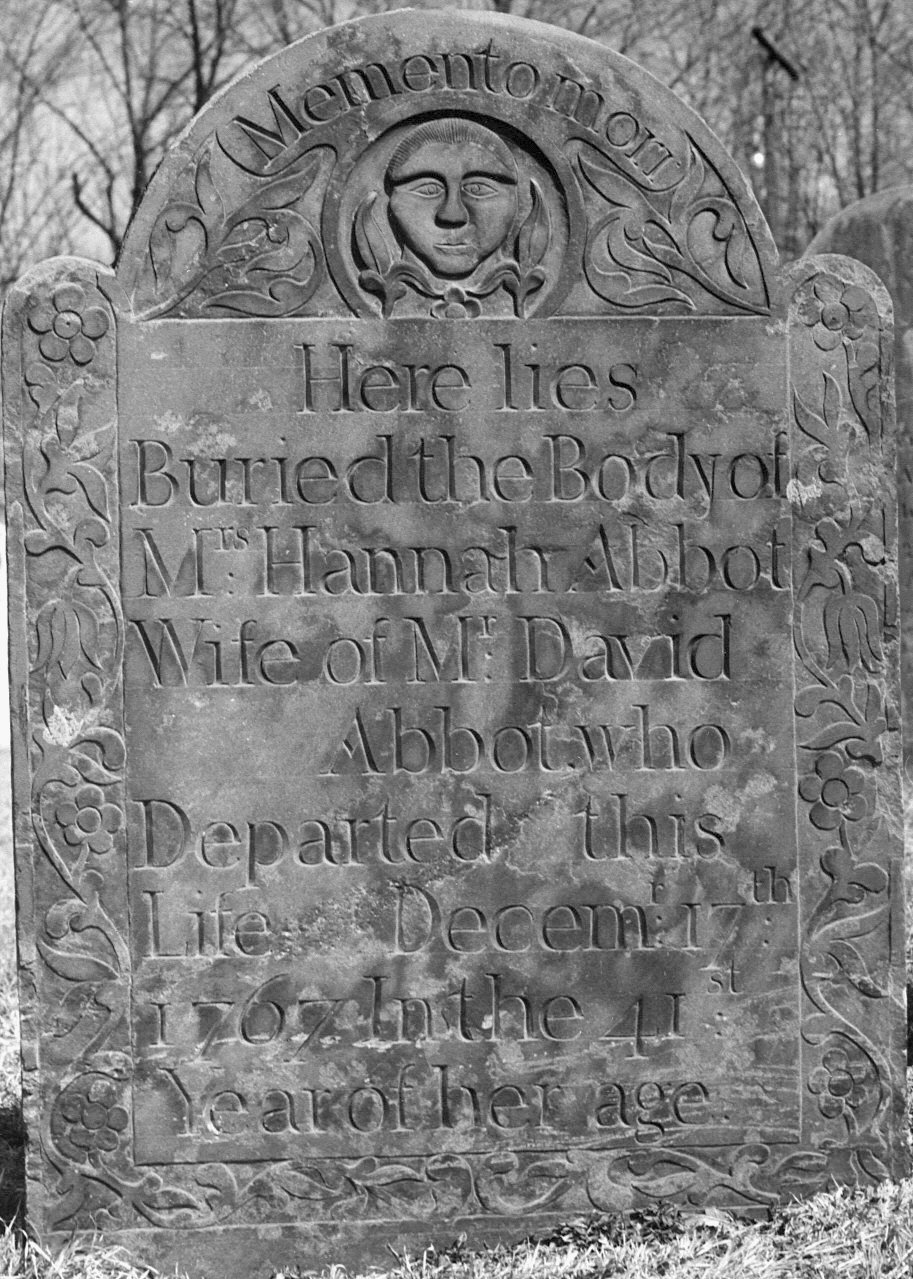 Memento mori
Here lies
Buried the Body of
M:rs Hannah Abbot
Wife of M:r David
Abbot. who
Departed this
Life Decem:r 17:th
1767 In the 41:st
Year of her age.